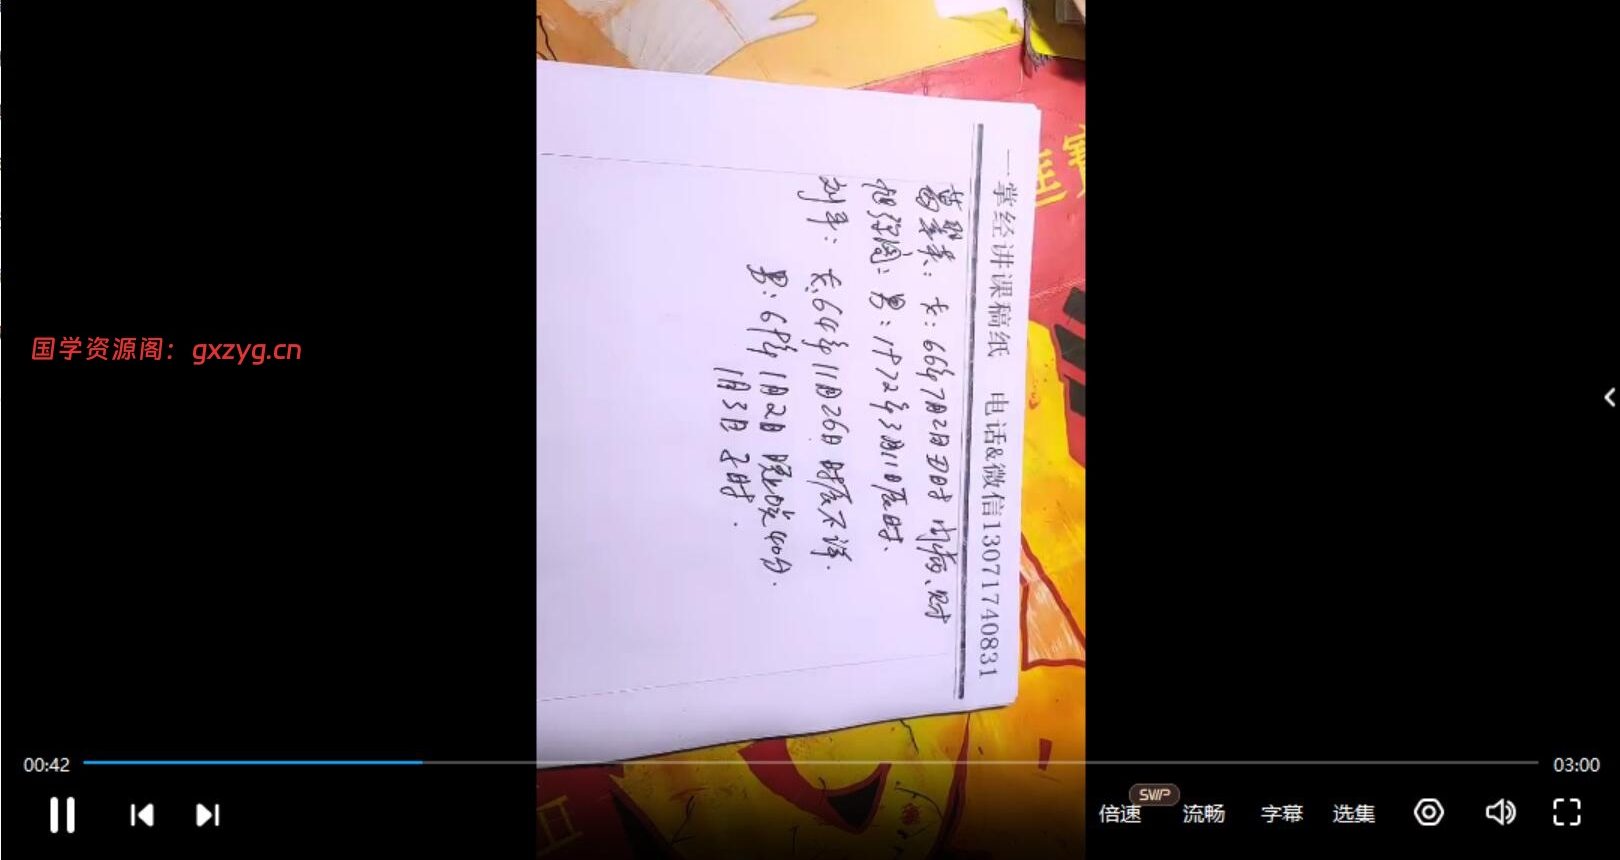 一掌经讲课稿纸 电话&微信13071740831
女：66年7月2日丑时
男：1972年3月11日辰时、
刘平： 女，64年11月26日 时辰不详.
男：69年1月2日 晚 40分.
1月3日 子时.
国学资源阁：gxzyg.cn
00:42
03:00
倍速
SVIP
流畅
字幕
选集